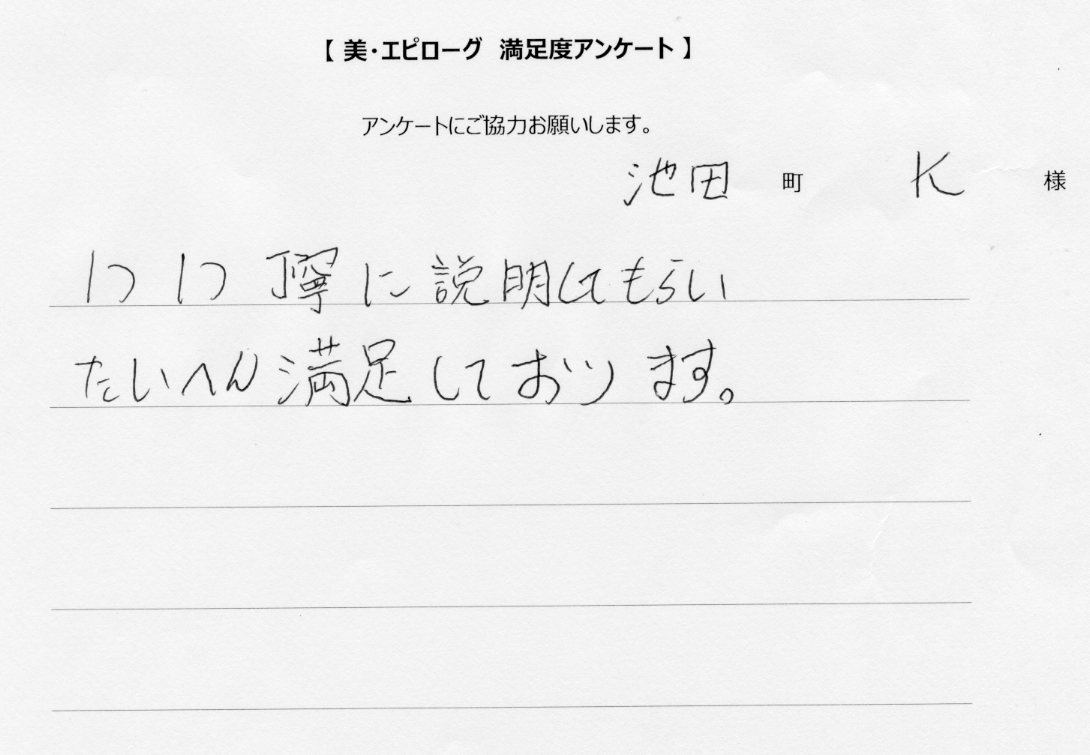 【 美・エピローグ 満足度アンケート 】
アンケートにご協力お願いします。
池田 町 K 様
1つ1つ丁寧に説明してもらい
たいへん満足しております。